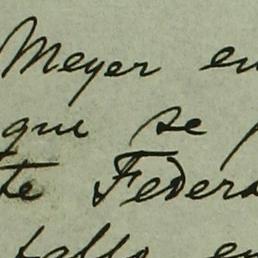 Meyer en
que se
te Federa